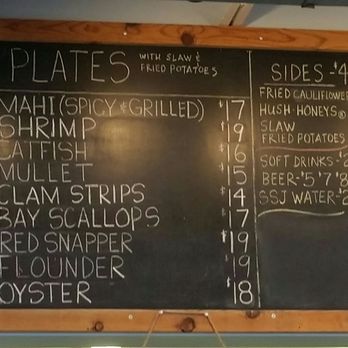 PLATES WITH SLAW &
FRIED POTATOES
MAHI (SPICY & GRILLED) $17
SHRIMP $19
CATFISH $16
MULLET $15
CLAM STRIPS $14
BAY SCALLOPS $17
RED SNAPPER $19
FLOUNDER $19
OYSTER $18
SIDES - $4
FRIED CAULIFLOWER
HUSH-HONEYS®
SLAW
FRIED POTATOES
SOFT DRINKS - $2
BEER - $5 $7 $8
SSJ WATER - $2